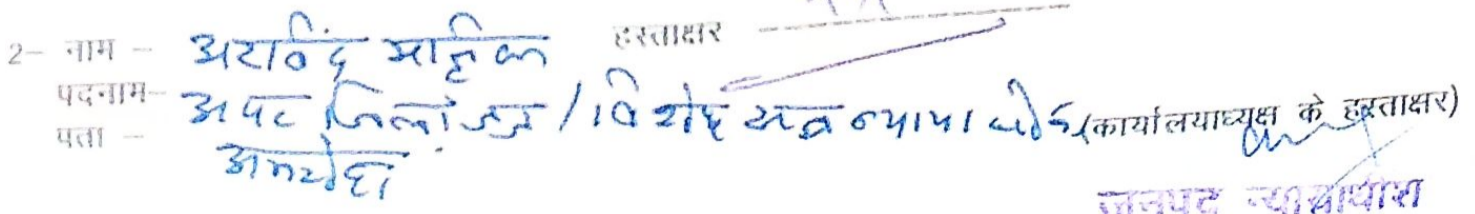 2- नाम - अरविंद मलिक हस्ताक्षर
पदनाम- अपर जिला जज / विशेष सत्र न्यायाधीश (कार्यालयाध्यक्ष के हस्ताक्षर)
पता - अमरोहा
जनपद न्यायाधीश